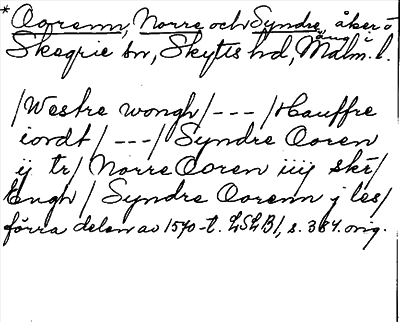 * Oorenn, Norre och Syndre, åker o
äng i
Skegrie sn, Skytts hd, Malm. l.
/Westre wongh/ --- /Hauffre
iordt/ --- / Syndre Ooren
ij tr/ Norre Ooren iiij skr/
Engh / Syndre Oorenn j les/
förra delen av 1570-t. LSLB1, s. 384. orig.